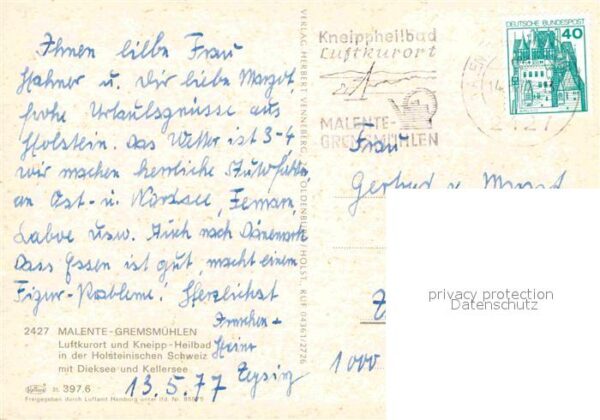 Ihnen liebe Frau
Hahner u. Dir liebe Margot,
frohe Urlaubsgrüsse aus
Holstein. Das Wetter ist 3-4
wir machen herrliche Autofahrten
an Ost- u. Nordsee, Femarn,
Laboe usw. Auch nach Dänemark
Dass Essen ist gut, macht einem
Figur-Probleme. Herzlichst
Heinz
13.5.77
2427 MALENTE-GREMSMÜHLEN
Luftkurort und Kneipp-Heilbad
in der Holsteinischen Schweiz
mit Dieksee und Kellersee
397.6
Freigegeben durch Luftamt Hamburg unter lfd. Nr.
VERLAG HERBERT VENNEBERG OLDENBURG/HOLST. RUF 04361/2726
Kneippheilbad
Luftkurort
MALENTE-
GREMSMÜHLEN
DEUTSCHE BUNDESPOST
40
14
2427
Frau
u. Margot
1000
privacy protection
Datenschutz